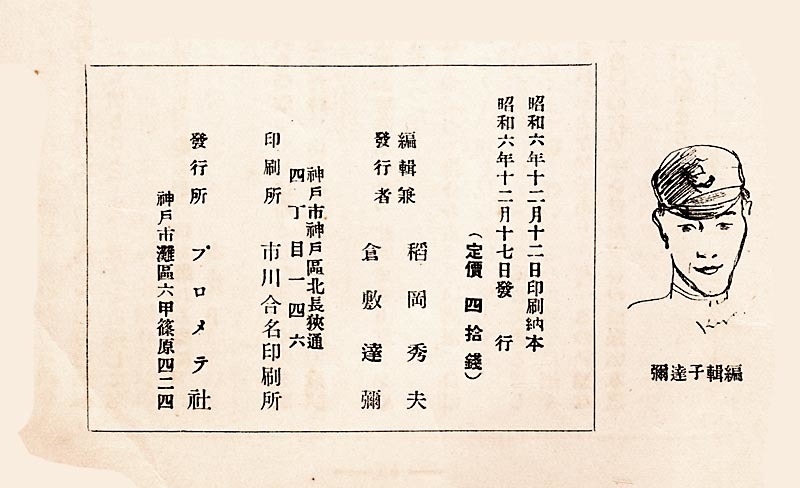 昭和六年十二月十二日印刷納本
昭和六年十二月十七日發行
（定價 四拾錢）
編輯兼
發行者
稻岡秀夫
倉敷達彌
神戶市神戶區北長狹通
四丁目一四六
印刷所 市川合名印刷所
發行所 プロメテ社
神戶市灘區六甲篠原四二四
編輯子達彌